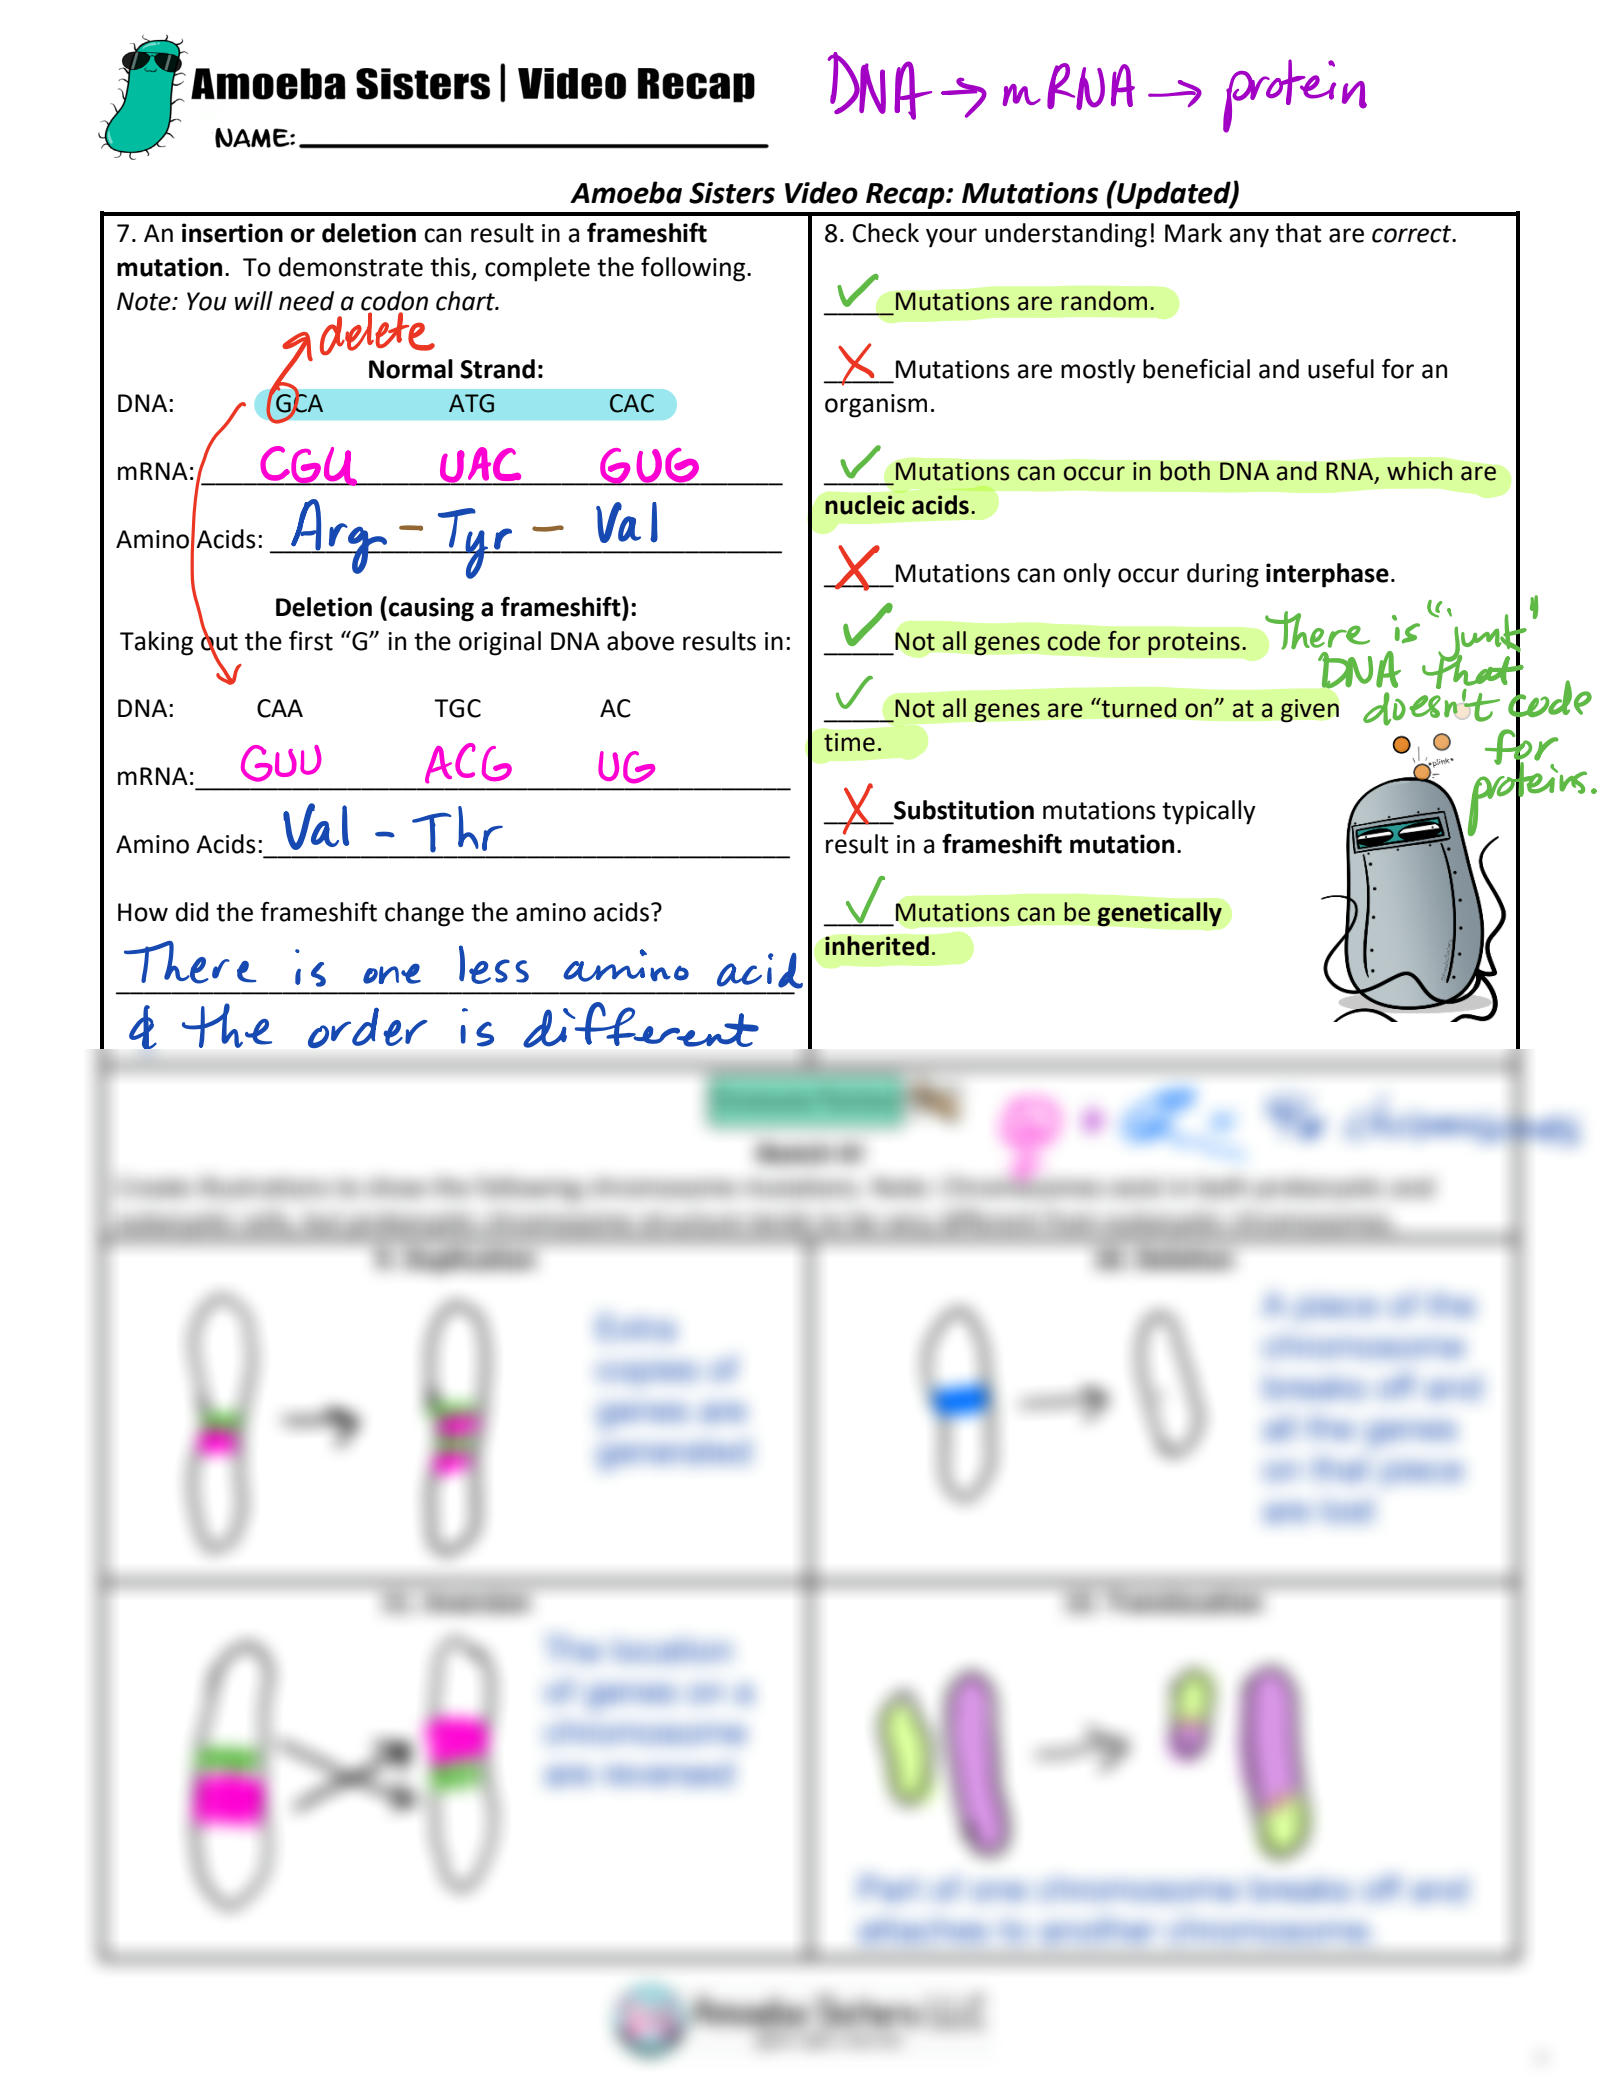 Amoeba Sisters | Video Recap
NAME:
DNA → mRNA → protein
Amoeba Sisters Video Recap: Mutations (Updated)
7. An insertion or deletion can result in a frameshift
mutation. To demonstrate this, complete the following.
Note: You will need a codon chart.
delete
Normal Strand:
DNA: GCA ATG CAC
mRNA: CGU UAC GUG
Amino Acids: Arg - Tyr - Val
Deletion (causing a frameshift):
Taking out the first “G” in the original DNA above results in:
DNA: CAA TGC AC
mRNA: GUU ACG UG
Amino Acids: Val - Thr
How did the frameshift change the amino acids?
There is one less amino acid
& the order is different
8. Check your understanding! Mark any that are correct.
✓ Mutations are random.
X Mutations are mostly beneficial and useful for an
organism.
✓ Mutations can occur in both DNA and RNA, which are
nucleic acids.
X Mutations can only occur during interphase.
✓ Not all genes code for proteins.
There is "junk"
DNA that
doesn't code
for
proteins.
✓ Not all genes are “turned on” at a given
time.
*plink*
X Substitution mutations typically
result in a frameshift mutation.
✓ Mutations can be genetically
inherited.
Extra
copies of
genes are
generated
A piece of the
chromosome
breaks off and
all the genes
on that piece
are lost
The location
of genes on a
chromosome
are reversed
Part of one chromosome breaks off and
attaches to another chromosome.